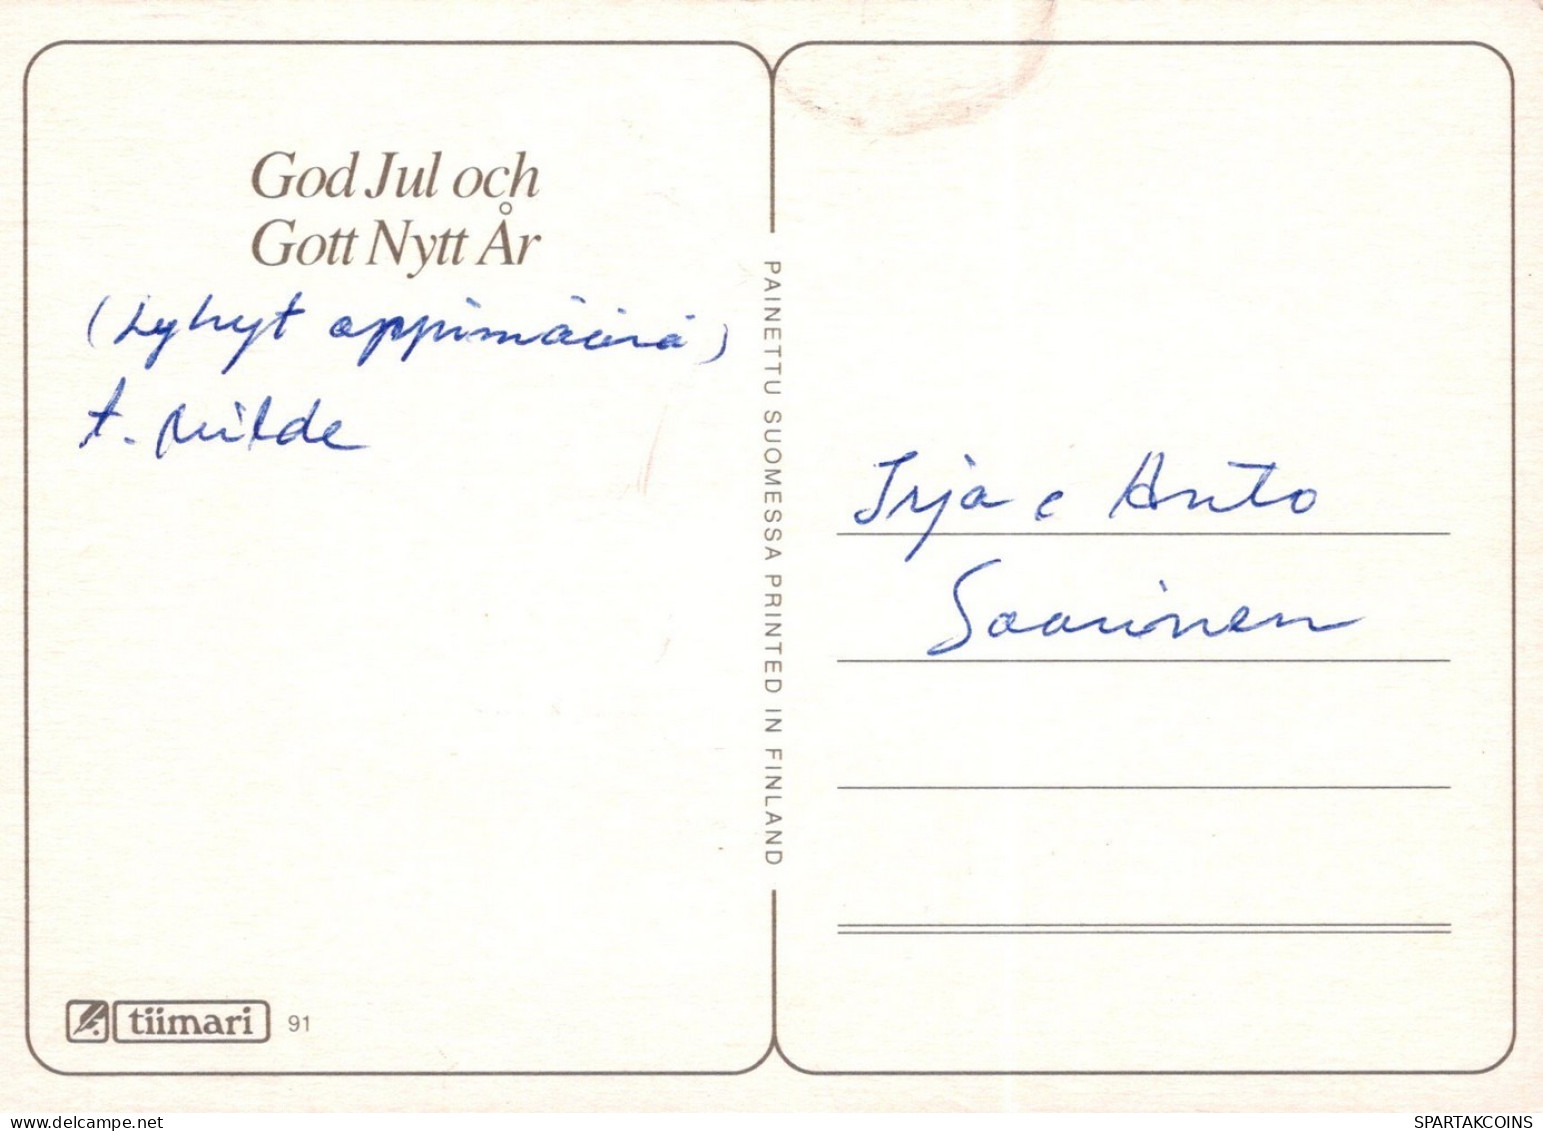 God Jul och
Gott Nytt År
(Lyhyt oppimäärä)
t. Milde
PAINETTU SUOMESSA PRINTED IN FINLAND
Irja &
Saarinen
tiimari 91
delcampe.net
SPARTAKCOINS